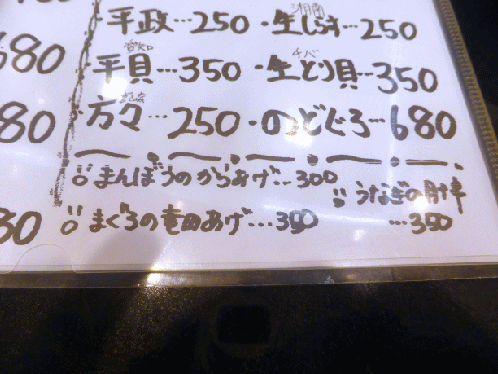 平政…250 ・生しらす…250
湘南
680
愛知 チバ
平貝…350 ・生とり貝…350
長崎
80 万々…250 ・のどぐろ…680
まんぼうのからあげ…300
うなぎの肝串
30 まぐろの竜田あげ…350 …350